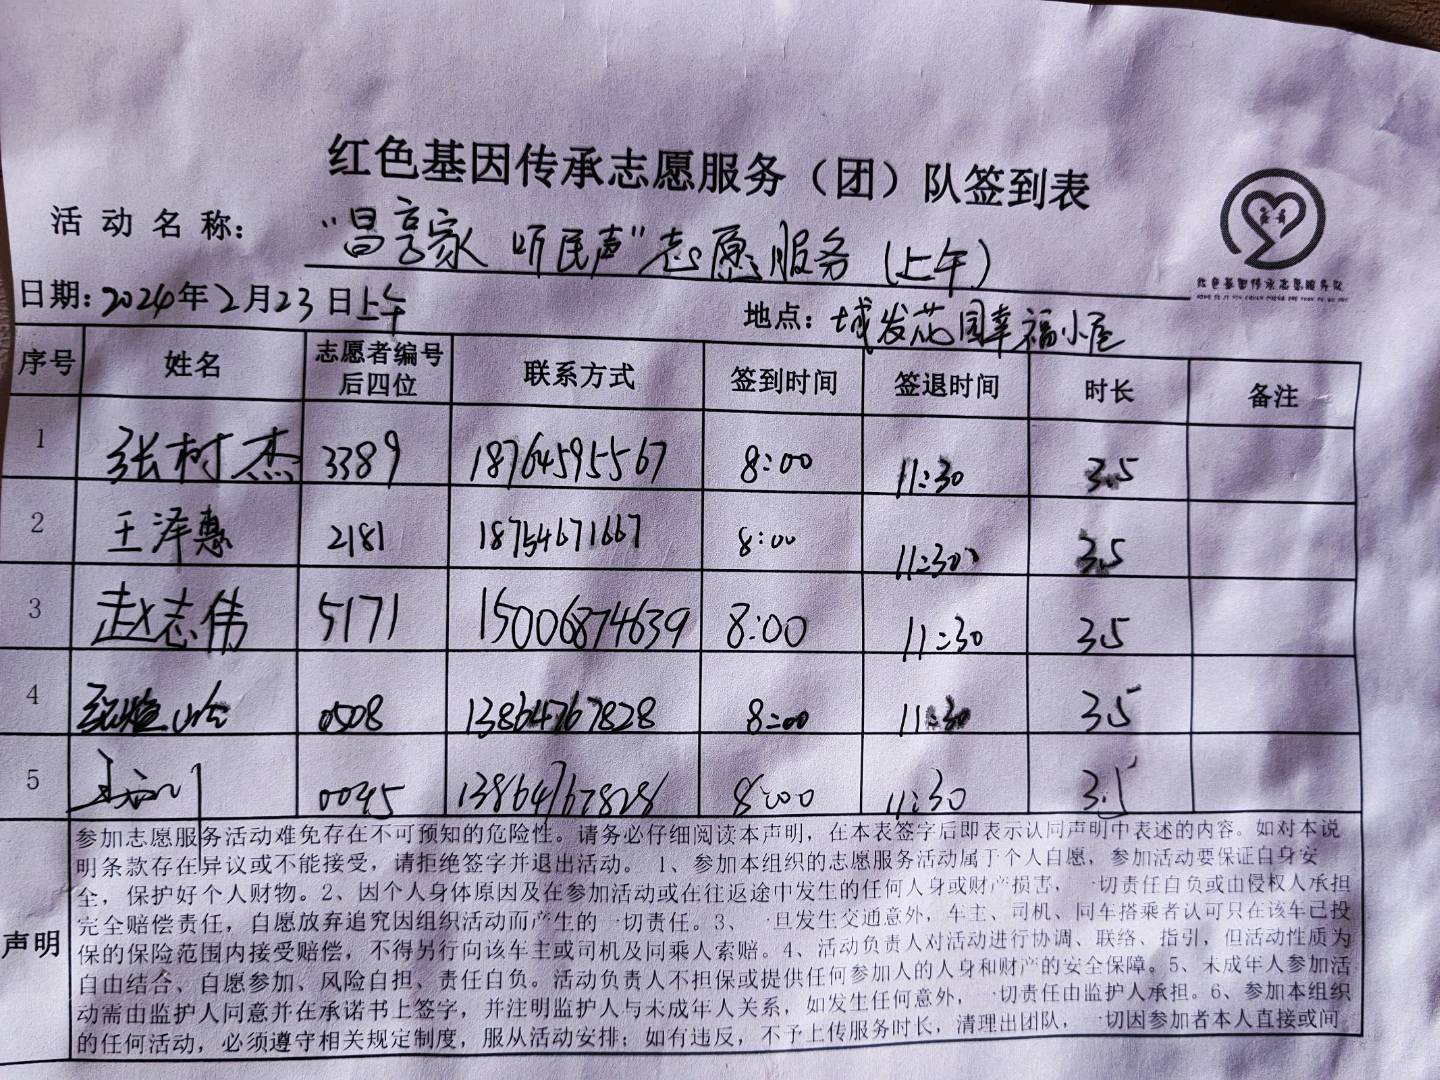 红色基因传承志愿服务（团）队签到表
活动名称： "昌享家 听民声"志愿服务（上午）
红色基因传承志愿服务队
日期：2024年2月23日上午 地点：城发花园幸福小屋
序号 姓名 志愿者编号后四位 联系方式 签到时间 签退时间 时长 备注
1 张树杰 3389 18764595567 8:00 11:30 3.5
2 王泽惠 2181 18754671667 8:00 11:30 3.5
3 赵志伟 5171 15006874639 8:00 11:30 3.5
4 0508 13864767828 8:00 11:30 3.5
5 0045 13864767828 8:00 11:30 3.5
声明
参加志愿服务活动难免存在不可预知的危险性。请务必仔细阅读本声明，在本表签字后即表示认同声明中表述的内容。如对本说
明条款存在异议或不能接受，请拒绝签字并退出活动。1、参加本组织的志愿服务活动属于个人自愿，参加活动要保证自身安
全，保护好个人财物。2、因个人身体原因及在参加活动或在往返途中发生的任何人身或财产损害，一切责任自负或由侵权人承担
完全赔偿责任，自愿放弃追究因组织活动而产生的一切责任。3、一旦发生交通意外，车主、司机、同车搭乘者认可只在该车已投
保的保险范围内接受赔偿，不得另行向该车主或司机及同乘人索赔。4、活动负责人对活动进行协调、联络、指引，但活动性质为
自由结合、自愿参加、风险自担、责任自负。活动负责人不担保或提供任何参加人的人身和财产的安全保障。5、未成年人参加活
动需由监护人同意并在承诺书上签字，并注明监护人与未成年人关系，如发生任何意外，一切责任由监护人承担。6、参加本组织
的任何活动，必须遵守相关规定制度，服从活动安排；如有违反，不予上传服务时长，清理出团队，一切因参加者本人直接或间